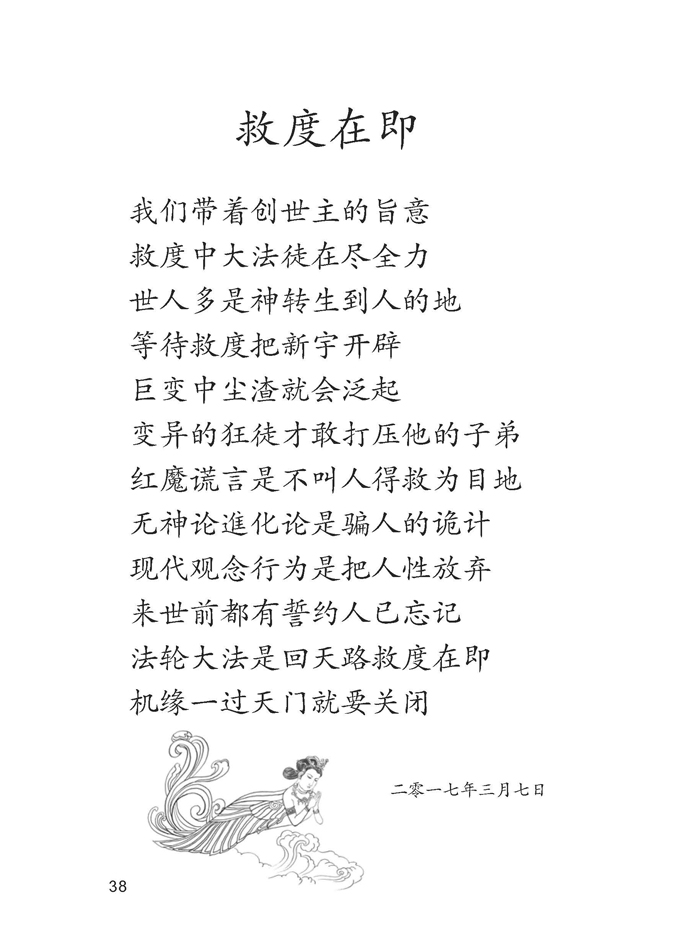 救度在即
我们带着创世主的旨意
救度中大法徒在尽全力
世人多是神转生到人的地
等待救度把新宇开辟
巨变中尘渣就会泛起
变异的狂徒才敢打压他的子弟
红魔谎言是不叫人得救为目地
无神论進化论是骗人的诡计
现代观念行为是把人性放弃
来世前都有誓约人已忘记
法轮大法是回天路救度在即
机缘一过天门就要关闭
二零一七年三月七日
38